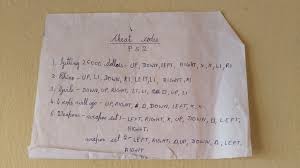 Cheat codes
PS2
1. Getting 25000 dollars - UP, DOWN, LEFT, RIGHT, X, X, L1, R1
2. Rhino - UP, L1, DOWN, R1, LEFT, L1, RIGHT, R1
3. Girls - DOWN, UP, RIGHT, L1, L1, UP, L1
4. People will go - UP, RIGHT, DOWN, LEFT, X
5. Weapons - weapon set 1 - LEFT, RIGHT, X, UP, DOWN, □, LEFT,
RIGHT.
weapon set 2 - LEFT, RIGHT, □, UP, DOWN, △, LEFT,
RIGHT